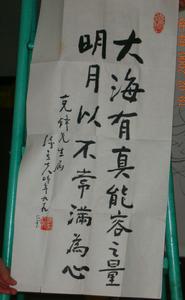 大海有真能容之量
明月以不常滿為心
克鋒先生屬